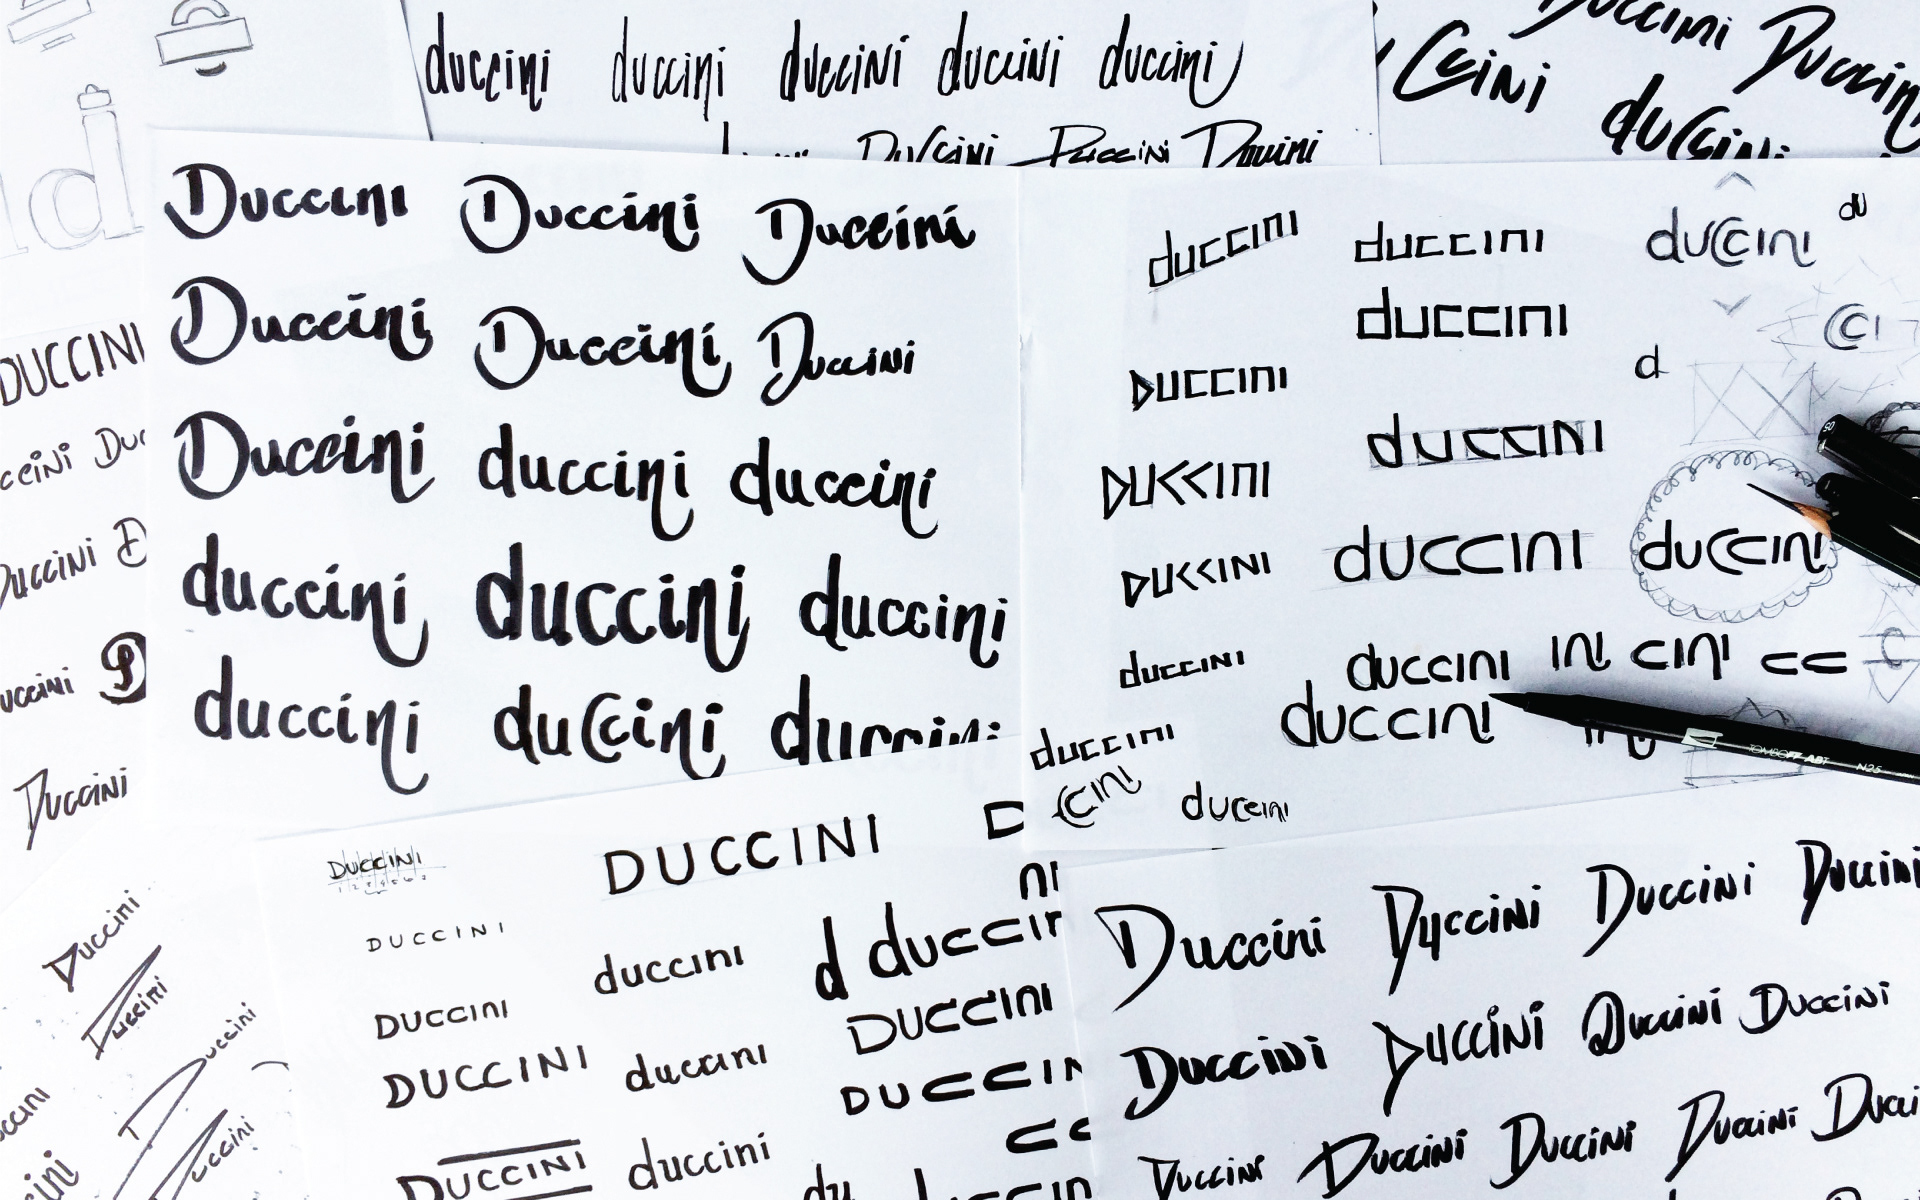 duccini duccini duccini duccini duccini
Duccini Duccini Duccini
Duccini Duccini
CCini duccini
ld
DUCCINI
ccini Duc
Duccini D
uccini D
Duccini
Duccini Duccini Duccini
Duccini Duccini Duccini
Duccini duccini duccini
duccini duccini duccini
duccini duccini duccini
duccini duccini duccini du
DUCCINI duccini CCI
DUCCINI duccini d
DUCCINI duccini duccini
duccini duccini ini cini cc
duccini duccini
ccini duccini
TOMBOW ABT N25
DUCCINI
1 2 3 4 5 6 7
DUCCINI D
ni
DUCCINI duccini d duccin
DUCCINI DUCCINI
DUCCINI duccini DUCCIN
cc
DUCCINI duccini du
Duccini Duccini Duccini Duccini
Duccini Duccini Duccini Duccini
Duccini Duccini Duccini Duccini Ducci
Duccini
Duccini
Duccini
Duccini
uccini
cini